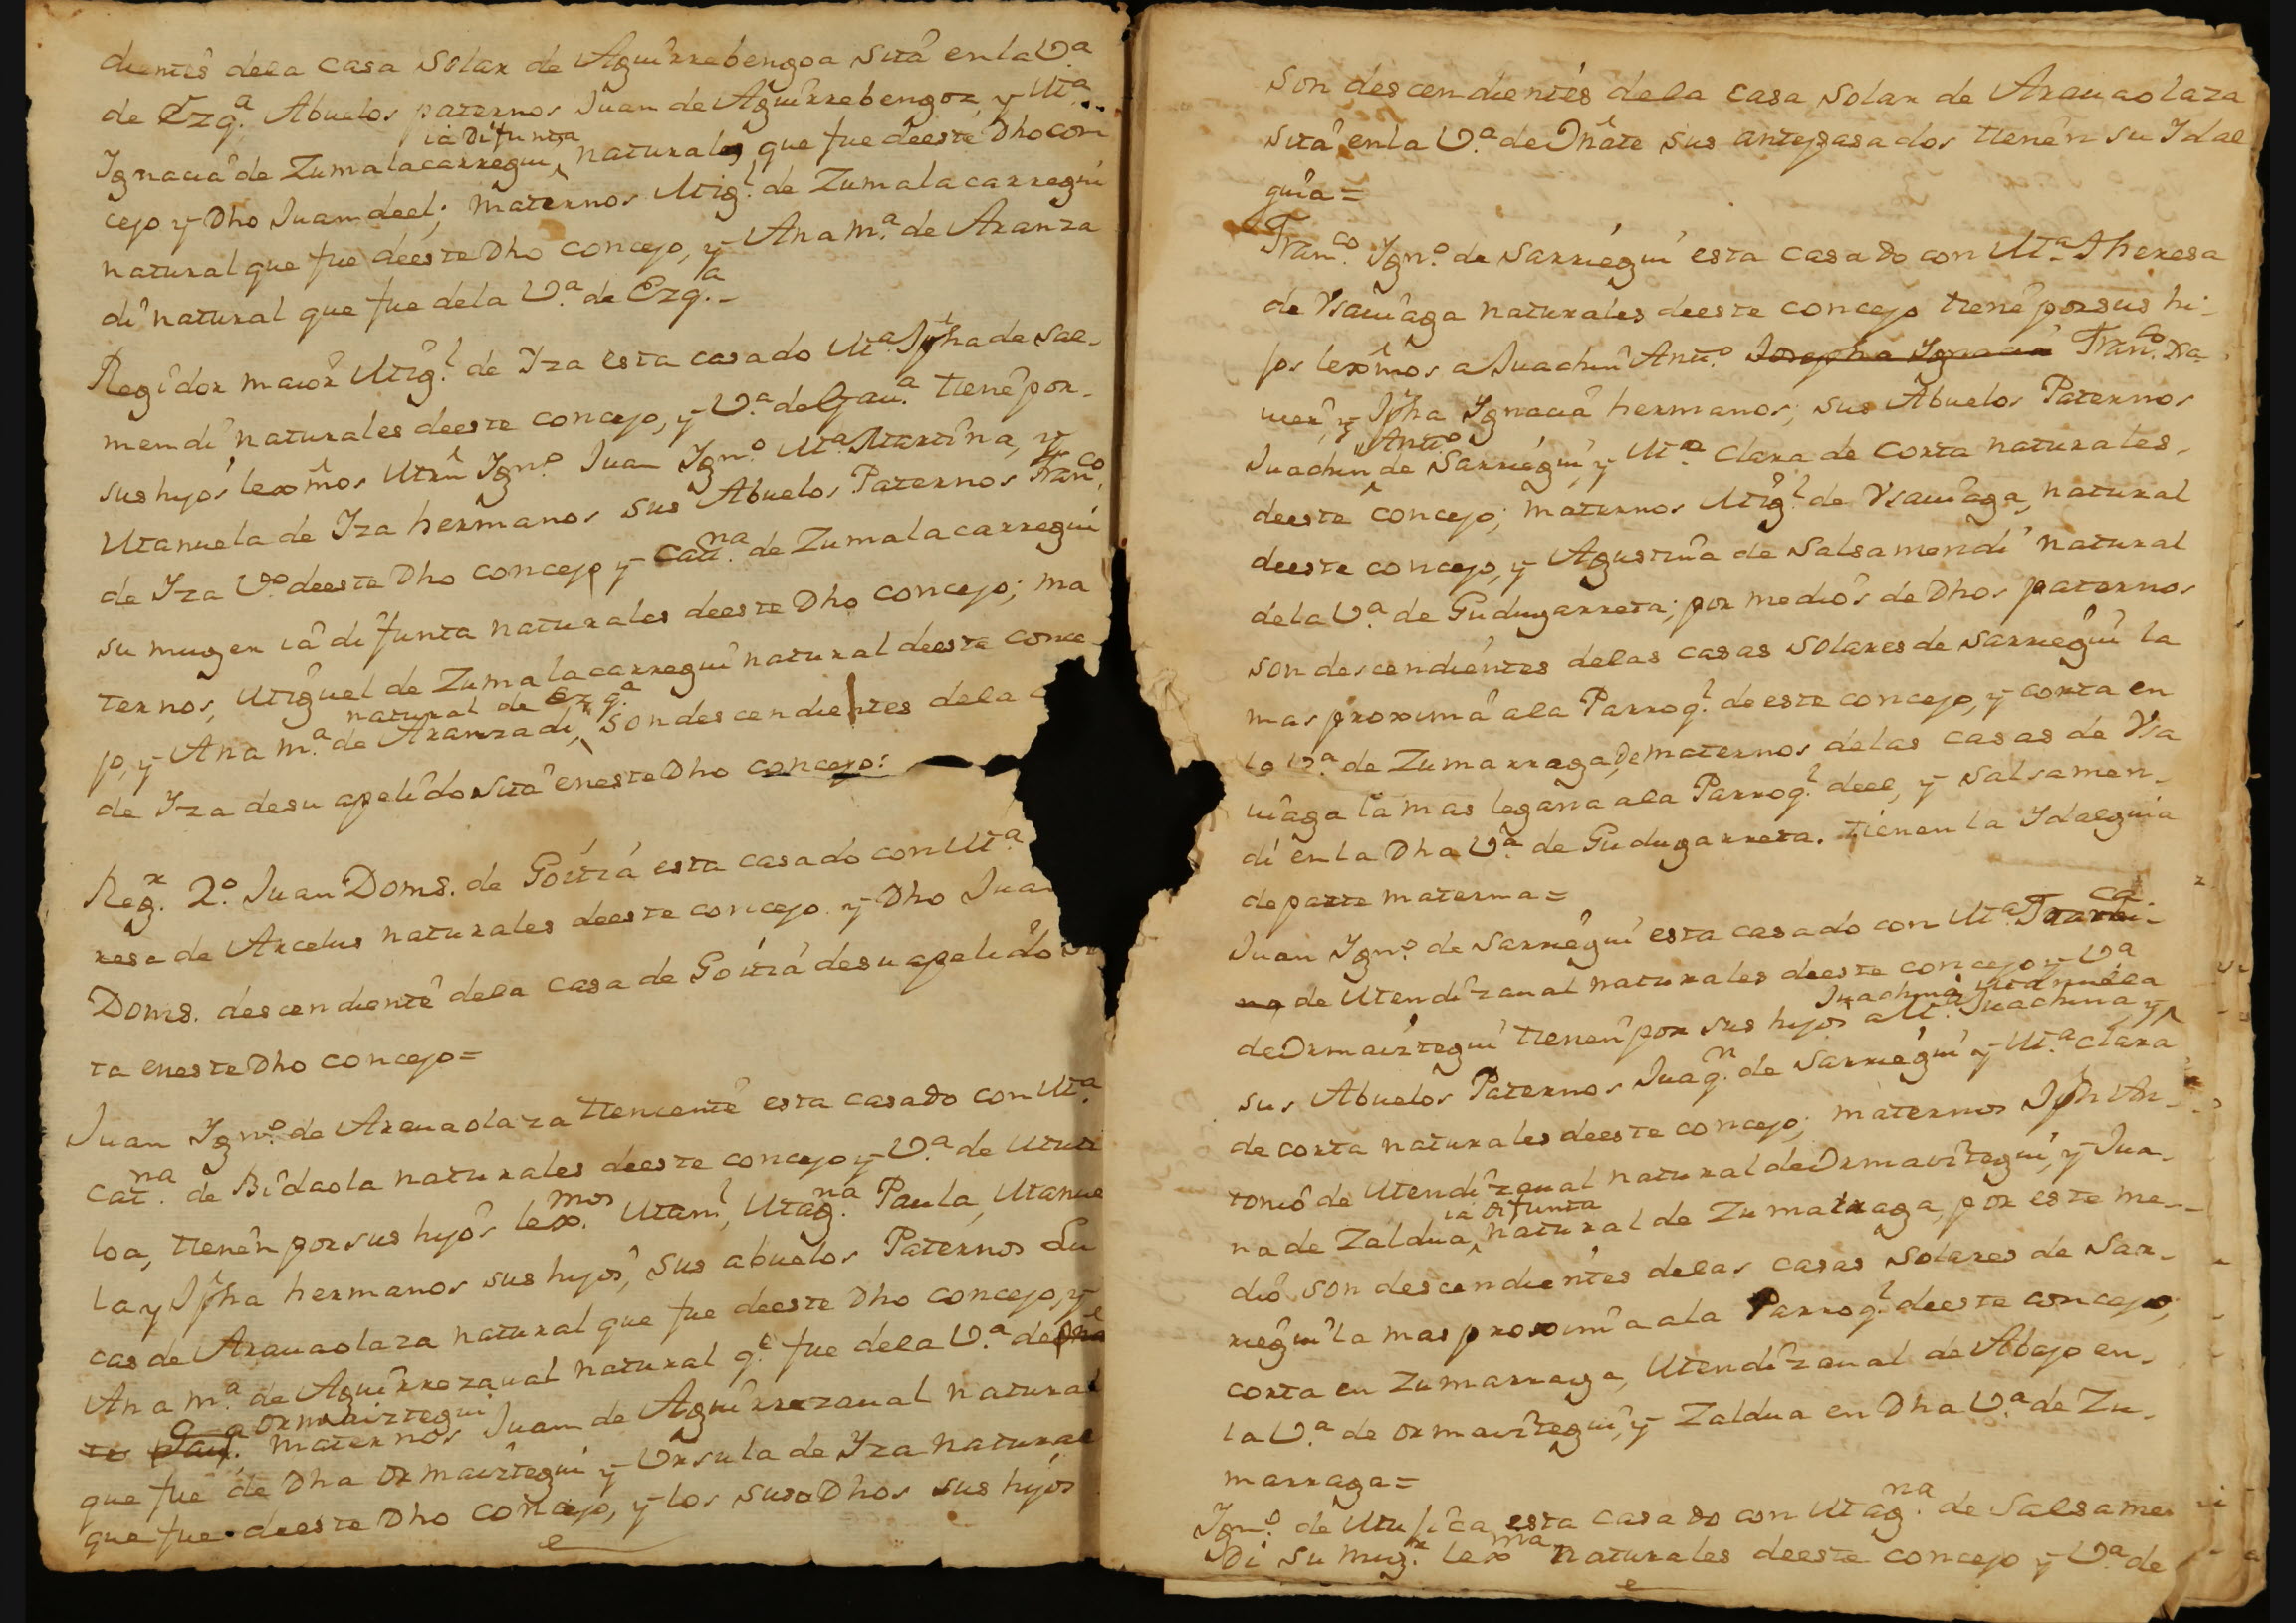 dientes dela casa Solar de Aguirrebengoa sita en la V.a
de Ezq.a Abuelos paternos Juan de Aguirrebengoa, y M.a
ia difunta
Ignacia de Zumalacarregui, naturales que fue deeste Dho con
cejo y Dho Juan deel; maternos Mig.l de Zumalacarregui
natural que fue deeste Dho concejo, y Ana m.a de Aranza
di natural que fue dela V.a de Ezq.a
Regidor maior Mig.l de Iza esta casado M.a Jpha de Sal-
mendi, naturales deeste concejo, y V.a de Gav.a tiene por
sus hijos lexmos Mrn Ign.o Juan Ign.o M.a Martina, y
Manuela de Iza hermanos sus Abuelos Paternos Fran.co
de Iza V.o deeste Dho concejo y Cat.na de Zumalacarregui
su muger ia difunta naturales deeste Dho concejo; ma
ternos, Miguel de Zumalacarregui natural deeste conce
natural de Ezq.a
jo, y Ana m.a de Aranzadi, son descendientes dela
de Iza desu apelido sita eneste Dho concejo:
Reg.r 2.o Juan Doms. de Goitia esta casado con M.a
resa de Arcelus naturales deeste concejo y Dho Juan
Doms. descendiente dela casa de Goitia desu apelido si
ta eneste Dho concejo=
Juan Ign.o de Arauaolaza teniente esta casado con M.a
Cat.na de Bidaola naturales deeste concejo y V.a de Muti
loa, tienen por sus hijos lex.mos Marn.l, Mag.na Paula, Manue
la y Jpha hermanos sus hijos, sus abuelos Paternos Lu
cas de Arauaolaza natural que fue deeste Dho concejo, y
Ana m.a de Aguirrezaual natural q.e fue dela V.a de
Ormaiztegui
maternos Juan de Aguirrezaual natural
que fue de Dha Ormaiztegui y Ursula de Iza natural
que fue deeste Dho concejo, y los susoDhos sus hijos
son descendientes dela casa solar de Arauaolaza
sita enla V.a de Oñate sus antepasados tienen su Idal
guia=
Fran.co Ign.o de Sarriegui esta casado con M.a Theresa
de Ysauiaga naturales deeste concejo tiene por sus hi-
jos lexmos a Juachin Anto.o Josepha Ignacia Fran.co Xa-
uier, y Jpha Ignacia hermanos; sus Abuelos Paternos
Anto.o
Juachin de Sarriegui, y M.a Clara de Corta naturales
deeste concejo; maternos Mig.l de Ysauiaga, natural
deeste concejo, y Agustina de Salsamendi natural
dela V.a de Gudugarreta; por medios de Dhos paternos
son descendientes delas casas solares de Sarriegui la
mas proxima ala Parroq.l deeste concejo, y corta en
la V.a de Zumarraga, De maternos delas casas de Ysa
uiaga la mas legana ala Parroq.l deel, y Salsamen-
di en la Dha V.a de Gudugarreta. tienen la Idalguia
de parte materna=
ca.
Juan Ign.o de Sarriegui esta casado con M.a Franci-
na de Mendizaual naturales deeste concejo y V.a
Juachina Manuela
de Ormaiztegui tienen por sus hijos a M.a Juachina, y
sus Abuelos Paternos Juaq.n de Sarriegui y M.a Clara
de corta naturales deeste concejo; maternos Jph An-
tonio de Mendizaual natural de Ormaiztegui, y Jua-
ia difunta
na de Zaldua, natural de Zumarraga, por este me-
dio son descendientes delas casas solares de Sar-
riegui la mas proxima ala Parroq.l deeste concejo;
corta en Zumarraga, Mendizaual de Abajo en
la V.a de Ormaiztegui, y Zaldua en Dha V.a de Zu-
marraga=
Ign.o de Mujica esta casado con Mag.na de Salsame
Di su mug.r lex.ma naturales deeste concejo y V.a de